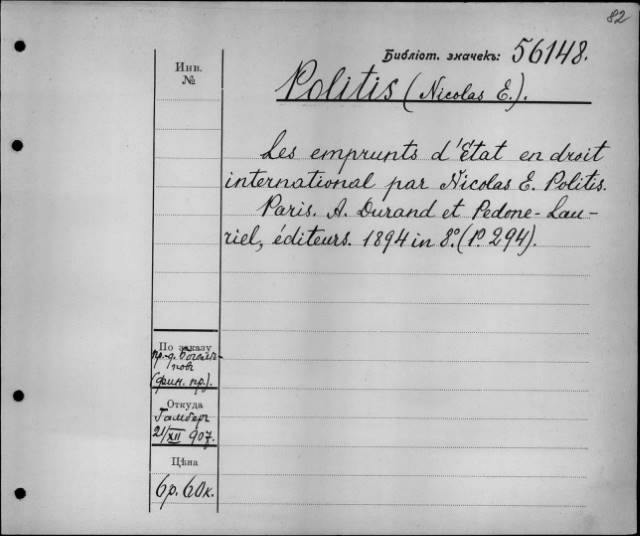 82
Библіот. значекъ: 56148.
Инв.
№
Politis (Nicolas E.).
Les emprunts d'État en droit
international par Nicolas E. Politis.
Paris. A. Durand et Pedone-Lau-
riel, éditeurs. 1894 in 8º. (P. 294).
По заказу
пр.-д.
(фин. пр.).
Откуда
Гамберъ
21/XII 907.
Цѣна
6 р. 60 к.